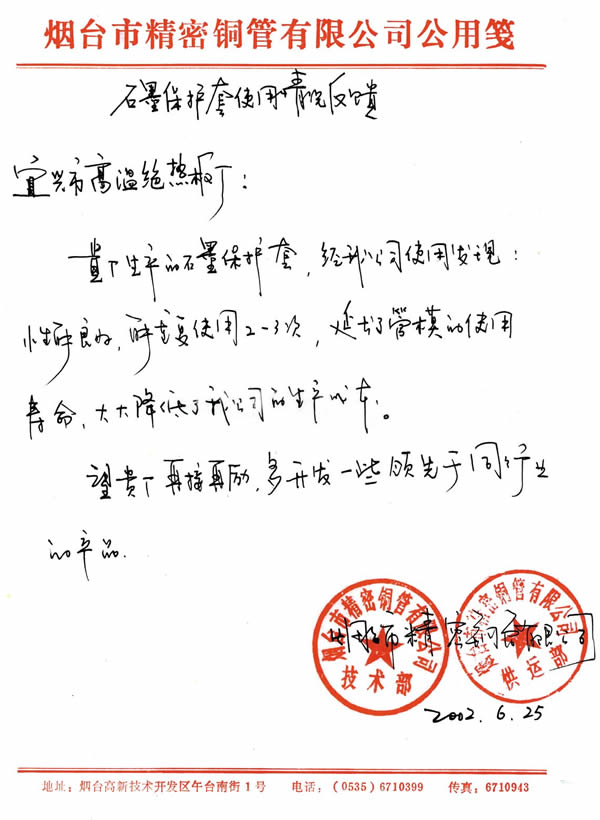 烟台市精密铜管有限公司公用笺
石墨保护套使用情况反馈
宜兴市高温绝热板厂：
贵厂生产的石墨保护套，经我公司使用发现：
性能良好，能重复使用2-3次，延长了管模的使用
寿命，大大降低了我公司的生产成本。
望贵厂再接再励，多开发一些领先于同行业
的产品.
烟台市精密铜管有限公司
烟台市精密铜管有限公司
技术部
密铜管有限公司
供运部
2002.6.25
地址：烟台高新技术开发区午台南街1号 电话：(0535)6710399 传真：6710943